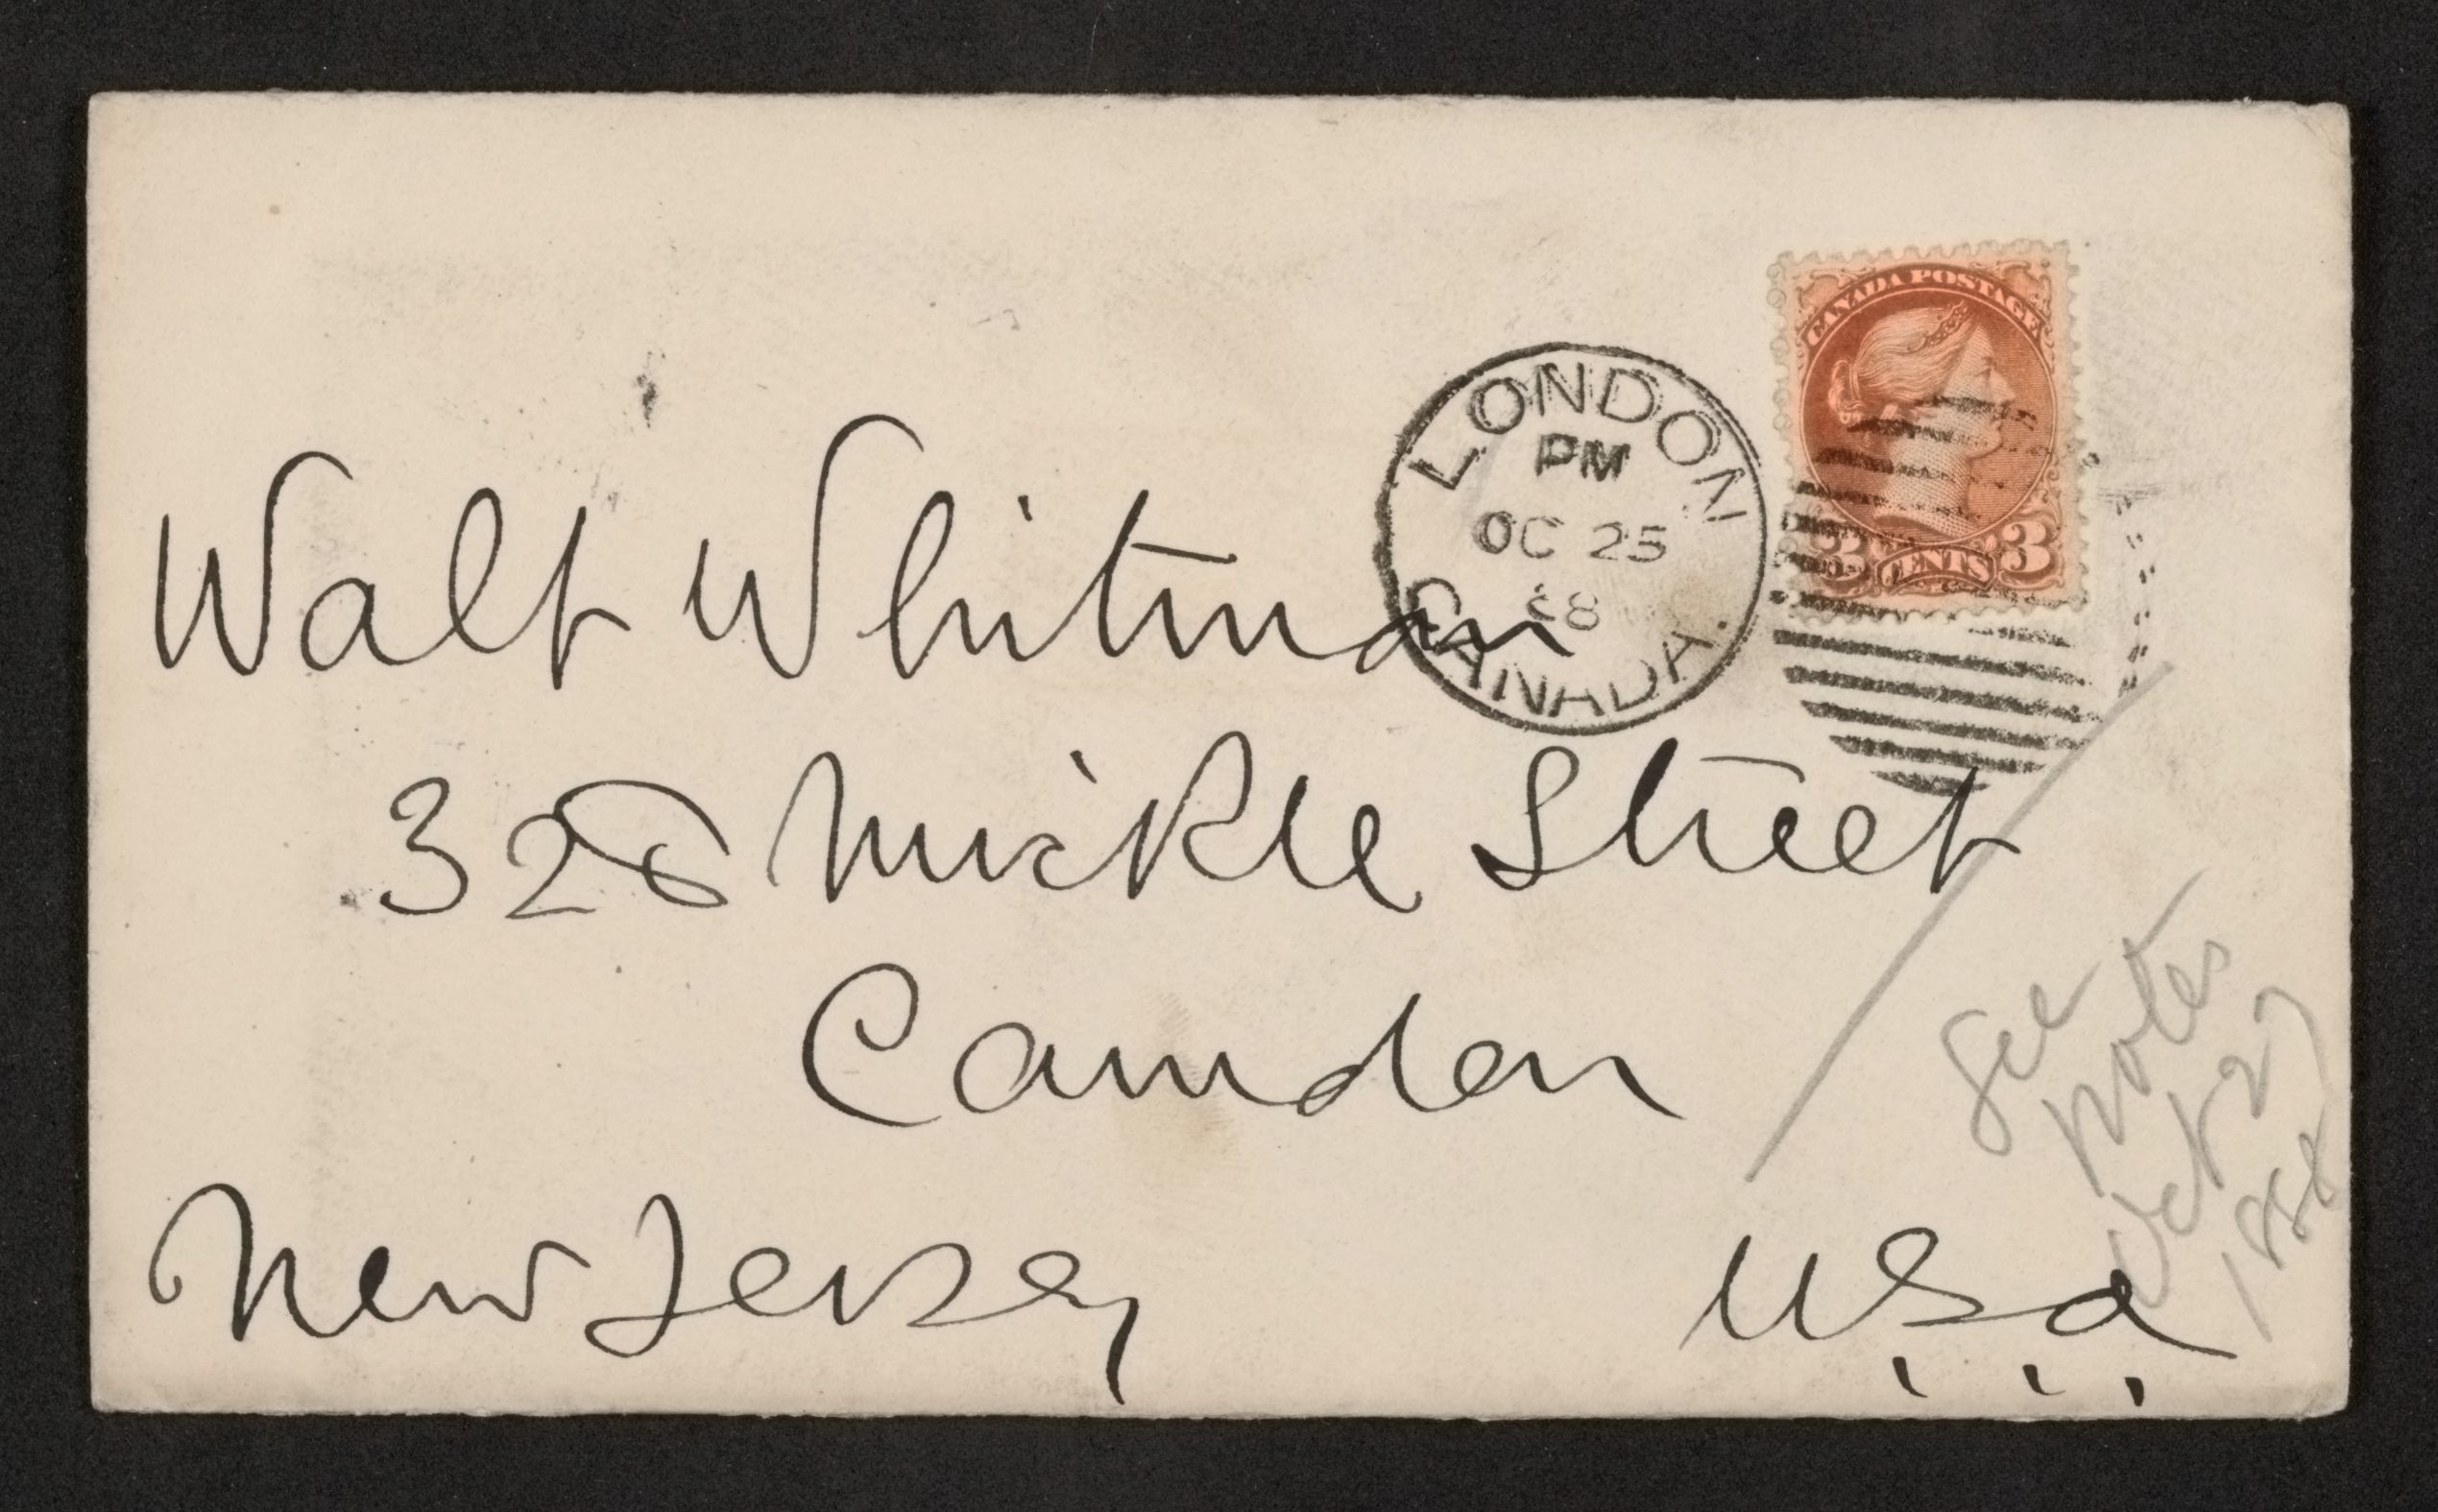 CANADA POSTAGE
3 CENTS 3
LONDON
PM
OC 25
88
CANADA.
Walt Whitman
328 Mickle Street
Camden
New Jersey
U.S.a.
see
notes
Oct 27
1888